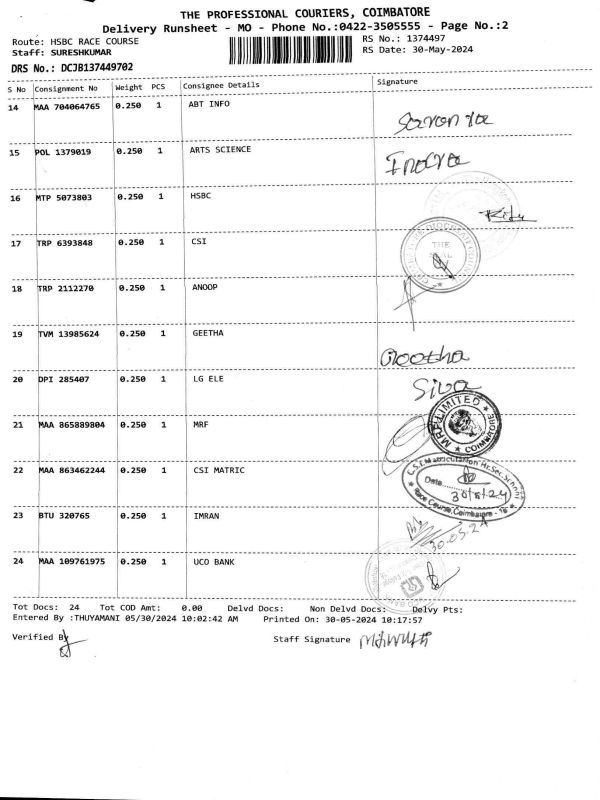 THE PROFESSIONAL COURIERS, COIMBATORE
Delivery Runsheet - MO - Phone No.:0422-3505555 - Page No.:2
Route: HSBC RACE COURSE
RS No.: 1374497
Staff: SURESHKUMAR
RS Date: 30-May-2024
DRS No.: DCJB137449702
S No Consignment No Weight PCS Consignee Details Signature
14 MAA 704064765 0.250 1 ABT INFO
15 POL 1379019 0.250 1 ARTS SCIENCE
16 MTP 5073803 0.250 1 HSBC
17 TRP 6393848 0.250 1 CSI
THE
SEAL
18 TRP 2112270 0.250 1 ANOOP
19 TVM 13985624 0.250 1 GEETHA
Geetha
20 DPI 285407 0.250 1 LG ELE
Siva
21 MAA 865889804 0.250 1 MRF
MRF LIMITED
COIMBATORE
22 MAA 863462244 0.250 1 CSI MATRIC
C.S.I. Matriculation Hr. Sec. School
Date
30/5/24
Race Course, Coimbatore - 18
23 BTU 320765 0.250 1 IMRAN
30.05.24
24 MAA 109761975 0.250 1 UCO BANK
Tot Docs: 24 Tot COD Amt: 0.00 Delvd Docs: Non Delvd Docs: Delvy Pts:
Entered By :THUYAMANI 05/30/2024 10:02:42 AM Printed On: 30-05-2024 10:17:57
Verified By
Staff Signature